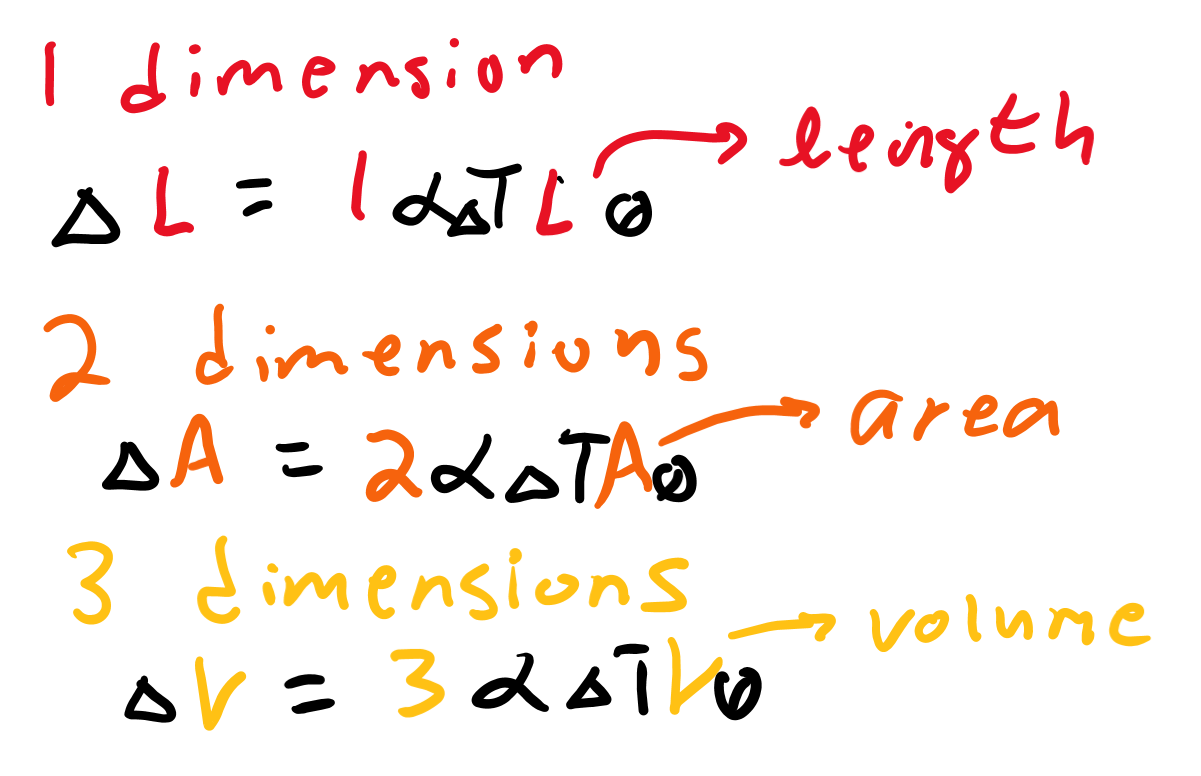 1 dimension
ΔL = 1αΔTL₀ → length
2 dimensions
ΔA = 2αΔTA₀ → area
3 dimensions
ΔV = 3αΔTV₀ → volume